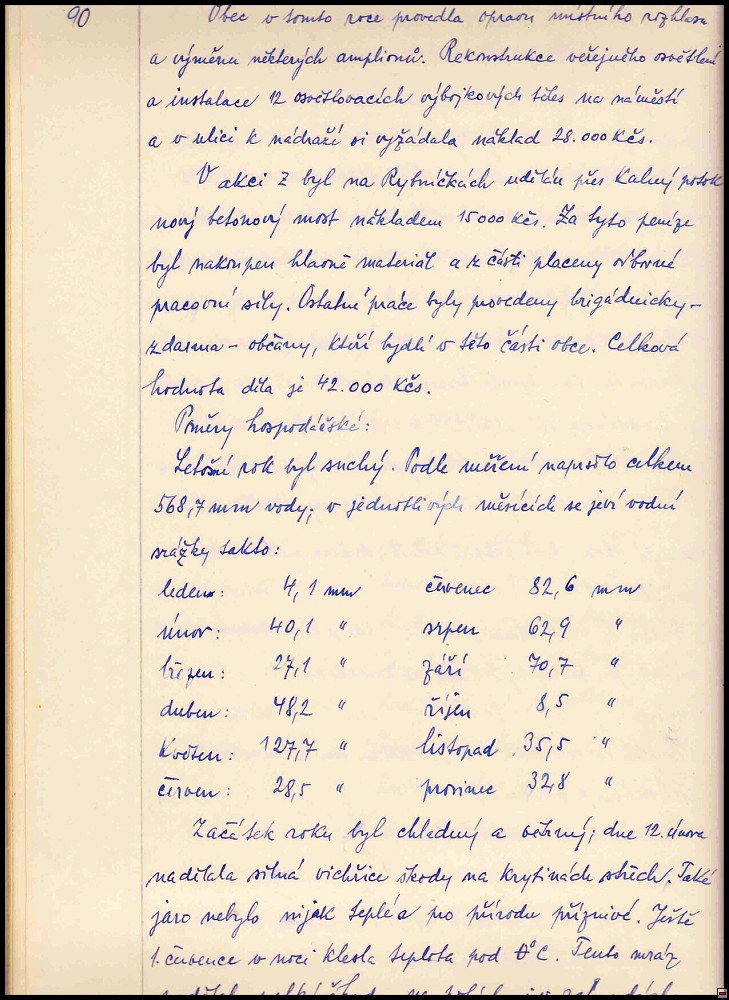 90
Obec v tomto roce provedla opravu místního rozhlasu
a výměnu některých amplionů. Rekonstrukce veřejného osvětlení
a instalace 12 osvětlovacích výbojkových těles na náměstí
a v ulici k nádraží si vyžádala náklad 28.000 Kčs.
V akci Z byl na Rybníčkách udělán přes Kalný potok
nový betonový most nákladem 15000 Kčs. Za tyto peníze
byl nakoupen hlavně materiál a z části placeny odborné
pracovní síly. Ostatní práce byly provedeny brigádnicky –
zdarma – občany, kteří bydlí v této části obce. Celková
hodnota díla je 42.000 Kčs.
Poměry hospodářské:
Letošní rok byl suchý. Podle měření napršelo celkem
568,7 mm vody; v jednotlivých měsících se jeví vodní
srážky takto:
leden: 4,1 mm červenec 82,6 mm
únor: 40,1 " srpen 62,9 "
březen: 27,1 " září 70,7 "
duben: 48,2 " říjen 8,5 "
Květen: 127,7 " listopad 35,5 "
červen: 28,5 " prosinec 32,8 "
Začátek roku byl chladný a větrný; dne 12. února
nadělala silná vichřice škody na krytinách střech. Také
jaro nebylo nijak teplé a pro přírodu příznivé. Ještě
1. července v noci klesla teplota pod 0°C. Tento mráz